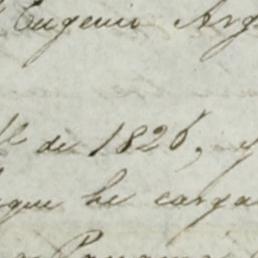 Eugenio Arg
de 1826, y
que he carga